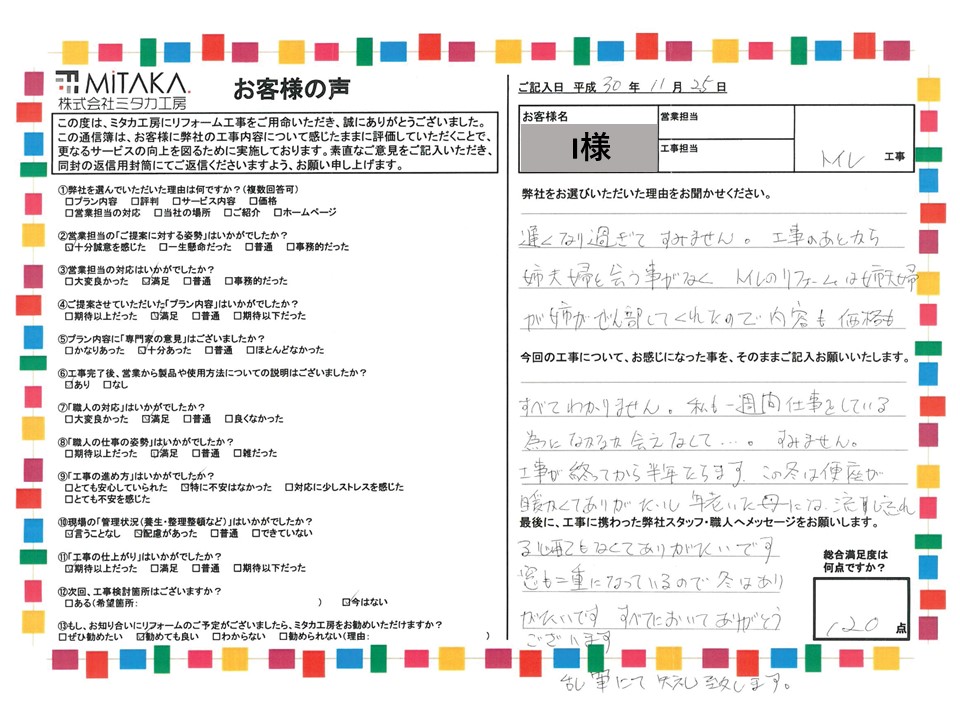 MiTAKA.
株式会社ミタカ工房
お客様の声
この度は、ミタカ工房にリフォーム工事をご用命いただき、誠にありがとうございました。
この通信簿は、お客様に弊社の工事内容について感じたままに評価していただくことで、
更なるサービスの向上を図るために実施しております。素直なご意見をご記入いただき、
同封の返信用封筒にてご返信くださいますよう、お願い申し上げます。
①弊社を選んでいただいた理由は何ですか？(複数回答可)
□プラン内容 □評判 □サービス内容 □価格
□営業担当の対応 □当社の場所 □ご紹介 □ホームページ
②営業担当の「ご提案に対する姿勢」はいかがでしたか？
☑十分誠意を感じた □一生懸命だった □普通 □事務的だった
③営業担当の対応はいかがでしたか？
□大変良かった ☑満足 □普通 □事務的だった
④ご提案させていただいた「プラン内容」はいかがでしたか？
□期待以上だった ☑満足 □普通 □期待以下だった
⑤プラン内容に「専門家の意見」はございましたか？
□かなりあった ☑十分あった □普通 □ほとんどなかった
⑥工事完了後、営業から製品や使用方法についての説明はございましたか？
☑あり □なし
⑦「職人の対応」はいかがでしたか？
□大変良かった ☑満足 □普通 □良くなかった
⑧「職人の仕事の姿勢」はいかがでしたか？
□期待以上だった ☑満足 □普通 □雑だった
⑨「工事の進め方」はいかがでしたか？
□とても安心していられた ☑特に不安はなかった □対応に少しストレスを感じた
□とても不安を感じた
⑩現場の「管理状況(養生・整理整頓など)」はいかがでしたか？
☑言うことなし ☑配慮があった □普通 □できていない
⑪「工事の仕上がり」はいかがでしたか？
☑期待以上だった □満足 □普通 □期待以下だった
⑫次回、工事検討箇所はございますか？
□ある(希望箇所: ) ☑今はない
⑬もし、お知り合いにリフォームのご予定がございましたら、ミタカ工房をお勧めいただけますか？
□ぜひ勧めたい ☑勧めても良い □わからない □勧められない(理由: )
ご記入日 平成 30 年 11 月 25 日
お客様名
I様
営業担当
工事担当
トイレ 工事
弊社をお選びいただいた理由をお聞かせください。
遅くなり過ぎてすみません。工事のあとから
姉夫婦と会う事がなく トイレのリフォームは姉夫婦
が姉がぜん部してくれたので内容も価格も
今回の工事について、お感じになった事を、そのままご記入お願いいたします。
すべてわかりません。私も一週間仕事をしている
為になかなか会えなくて…。すみません。
工事が終ってから半年たちます。この冬は便座が
暖かくてありがたいし 年老いた母には、流し忘れ
最後に、工事に携わった弊社スタッフ・職人へメッセージをお願いします。
る心配もなくてありがたいです
窓も二重になっているので冬はあり
がたいです すべてにおいてありがとう
ございます
乱筆にて失礼致します。
総合満足度は
何点ですか？
120 点